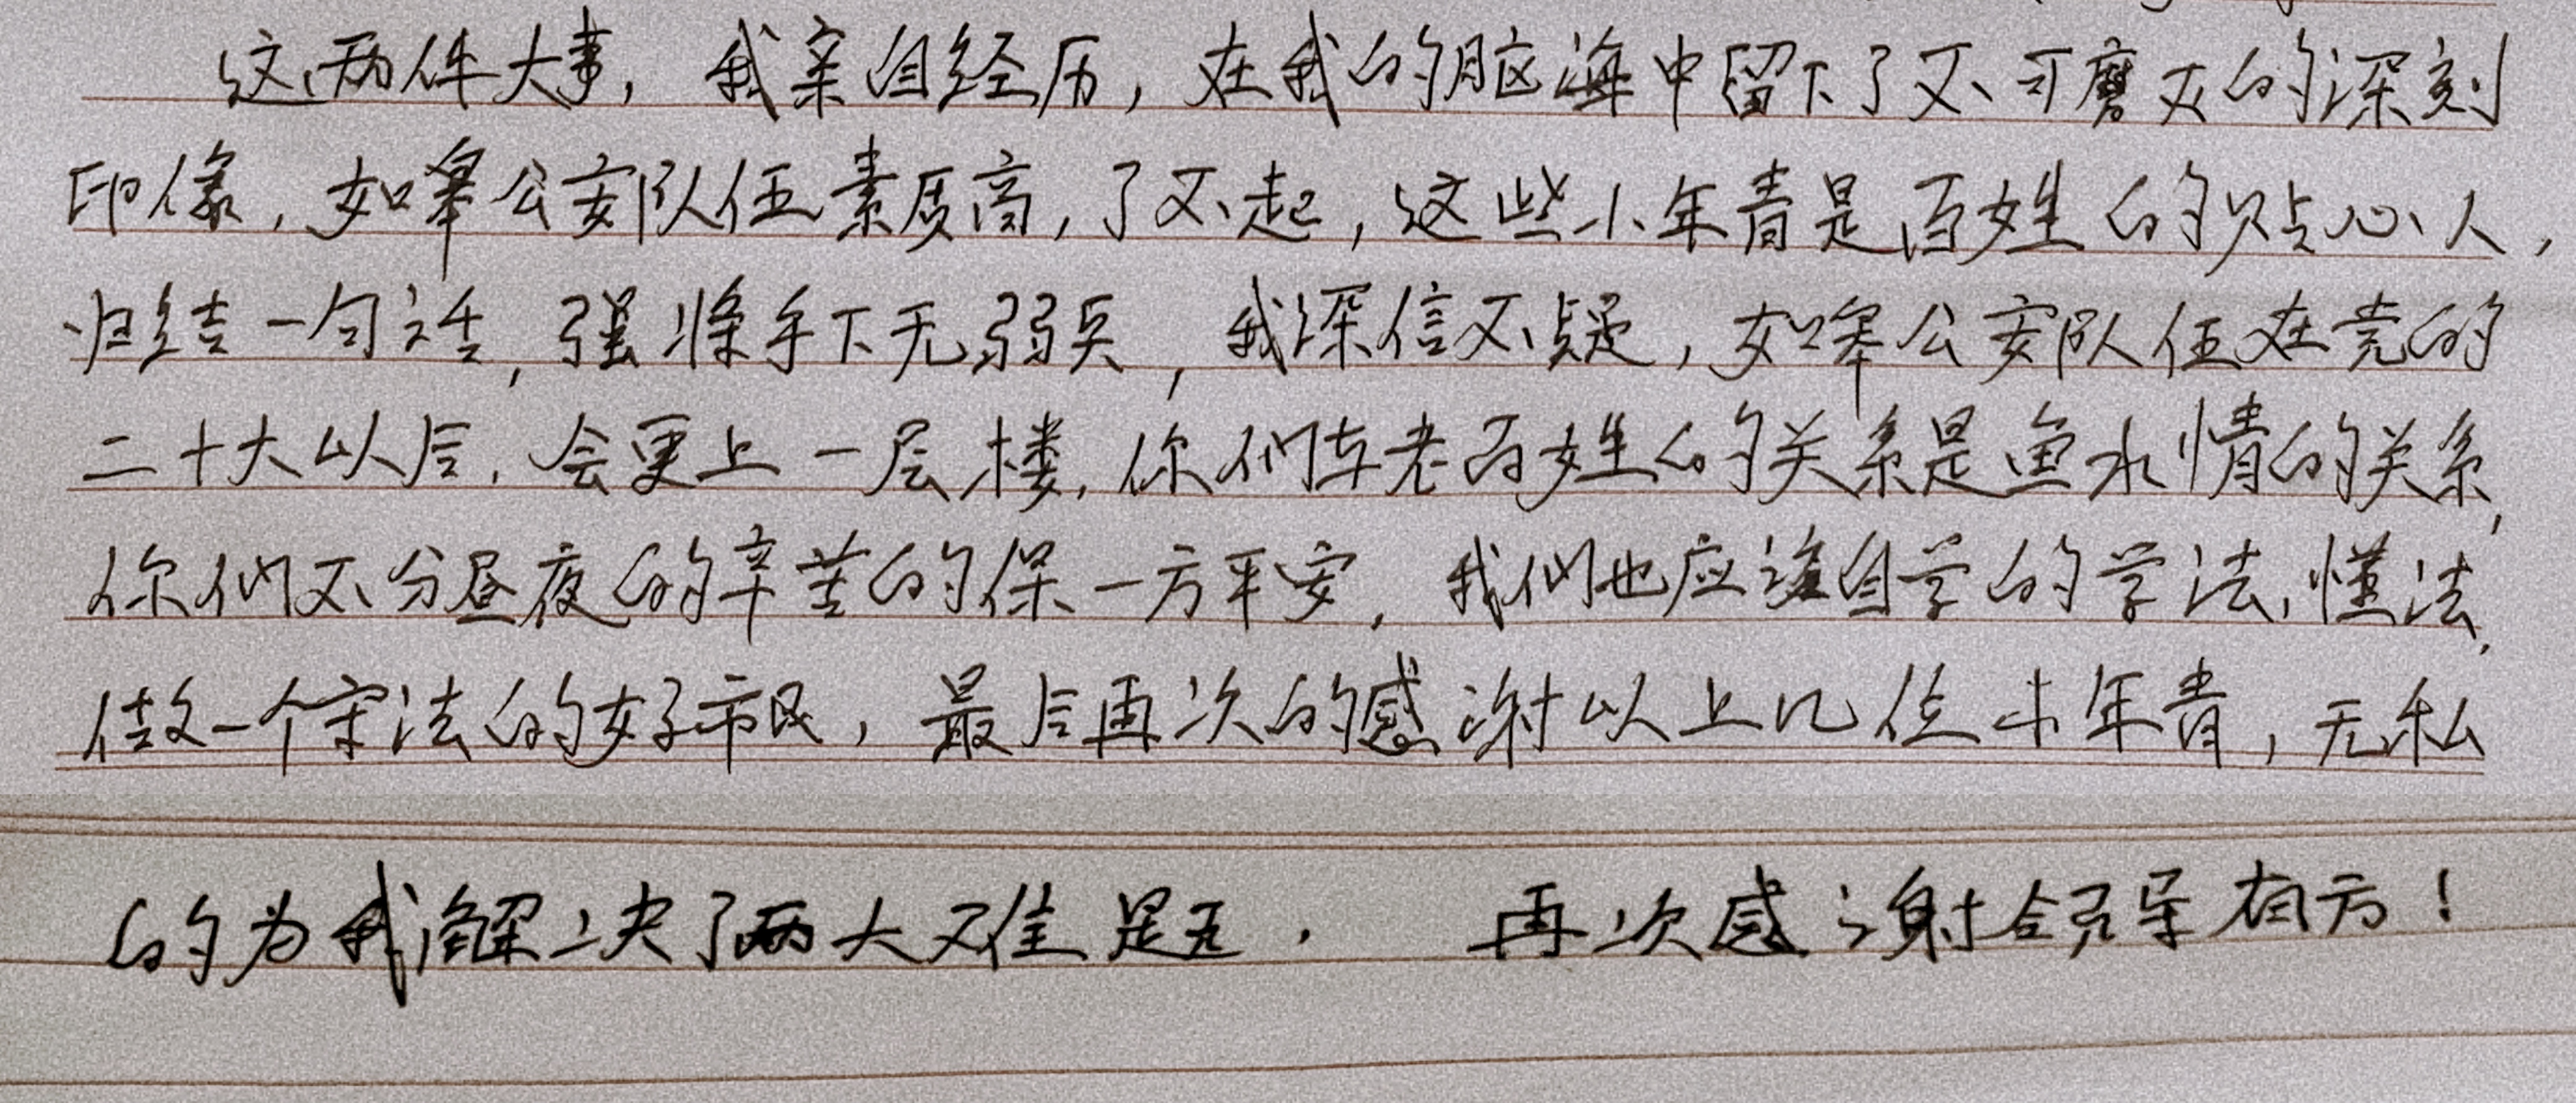 这两件大事，我亲自经历，在我的脑海中留下了不可磨灭的深刻
印像，如皋公安队伍素质高，了不起，这些小年青是百姓的贴心人，
归结一句话，强将手下无弱兵，我深信不疑，如皋公安队伍在党的
二十大以后，会更上一层楼，你们与老百姓的关系是鱼水情的关系，
你们不分昼夜的辛苦的保一方平安，我们也应该自学的学法，懂法，
做一个守法的好市民，最后再次的感谢以上几位小年青，无私
的为我解决了两大难题． 再次感谢领导有方！